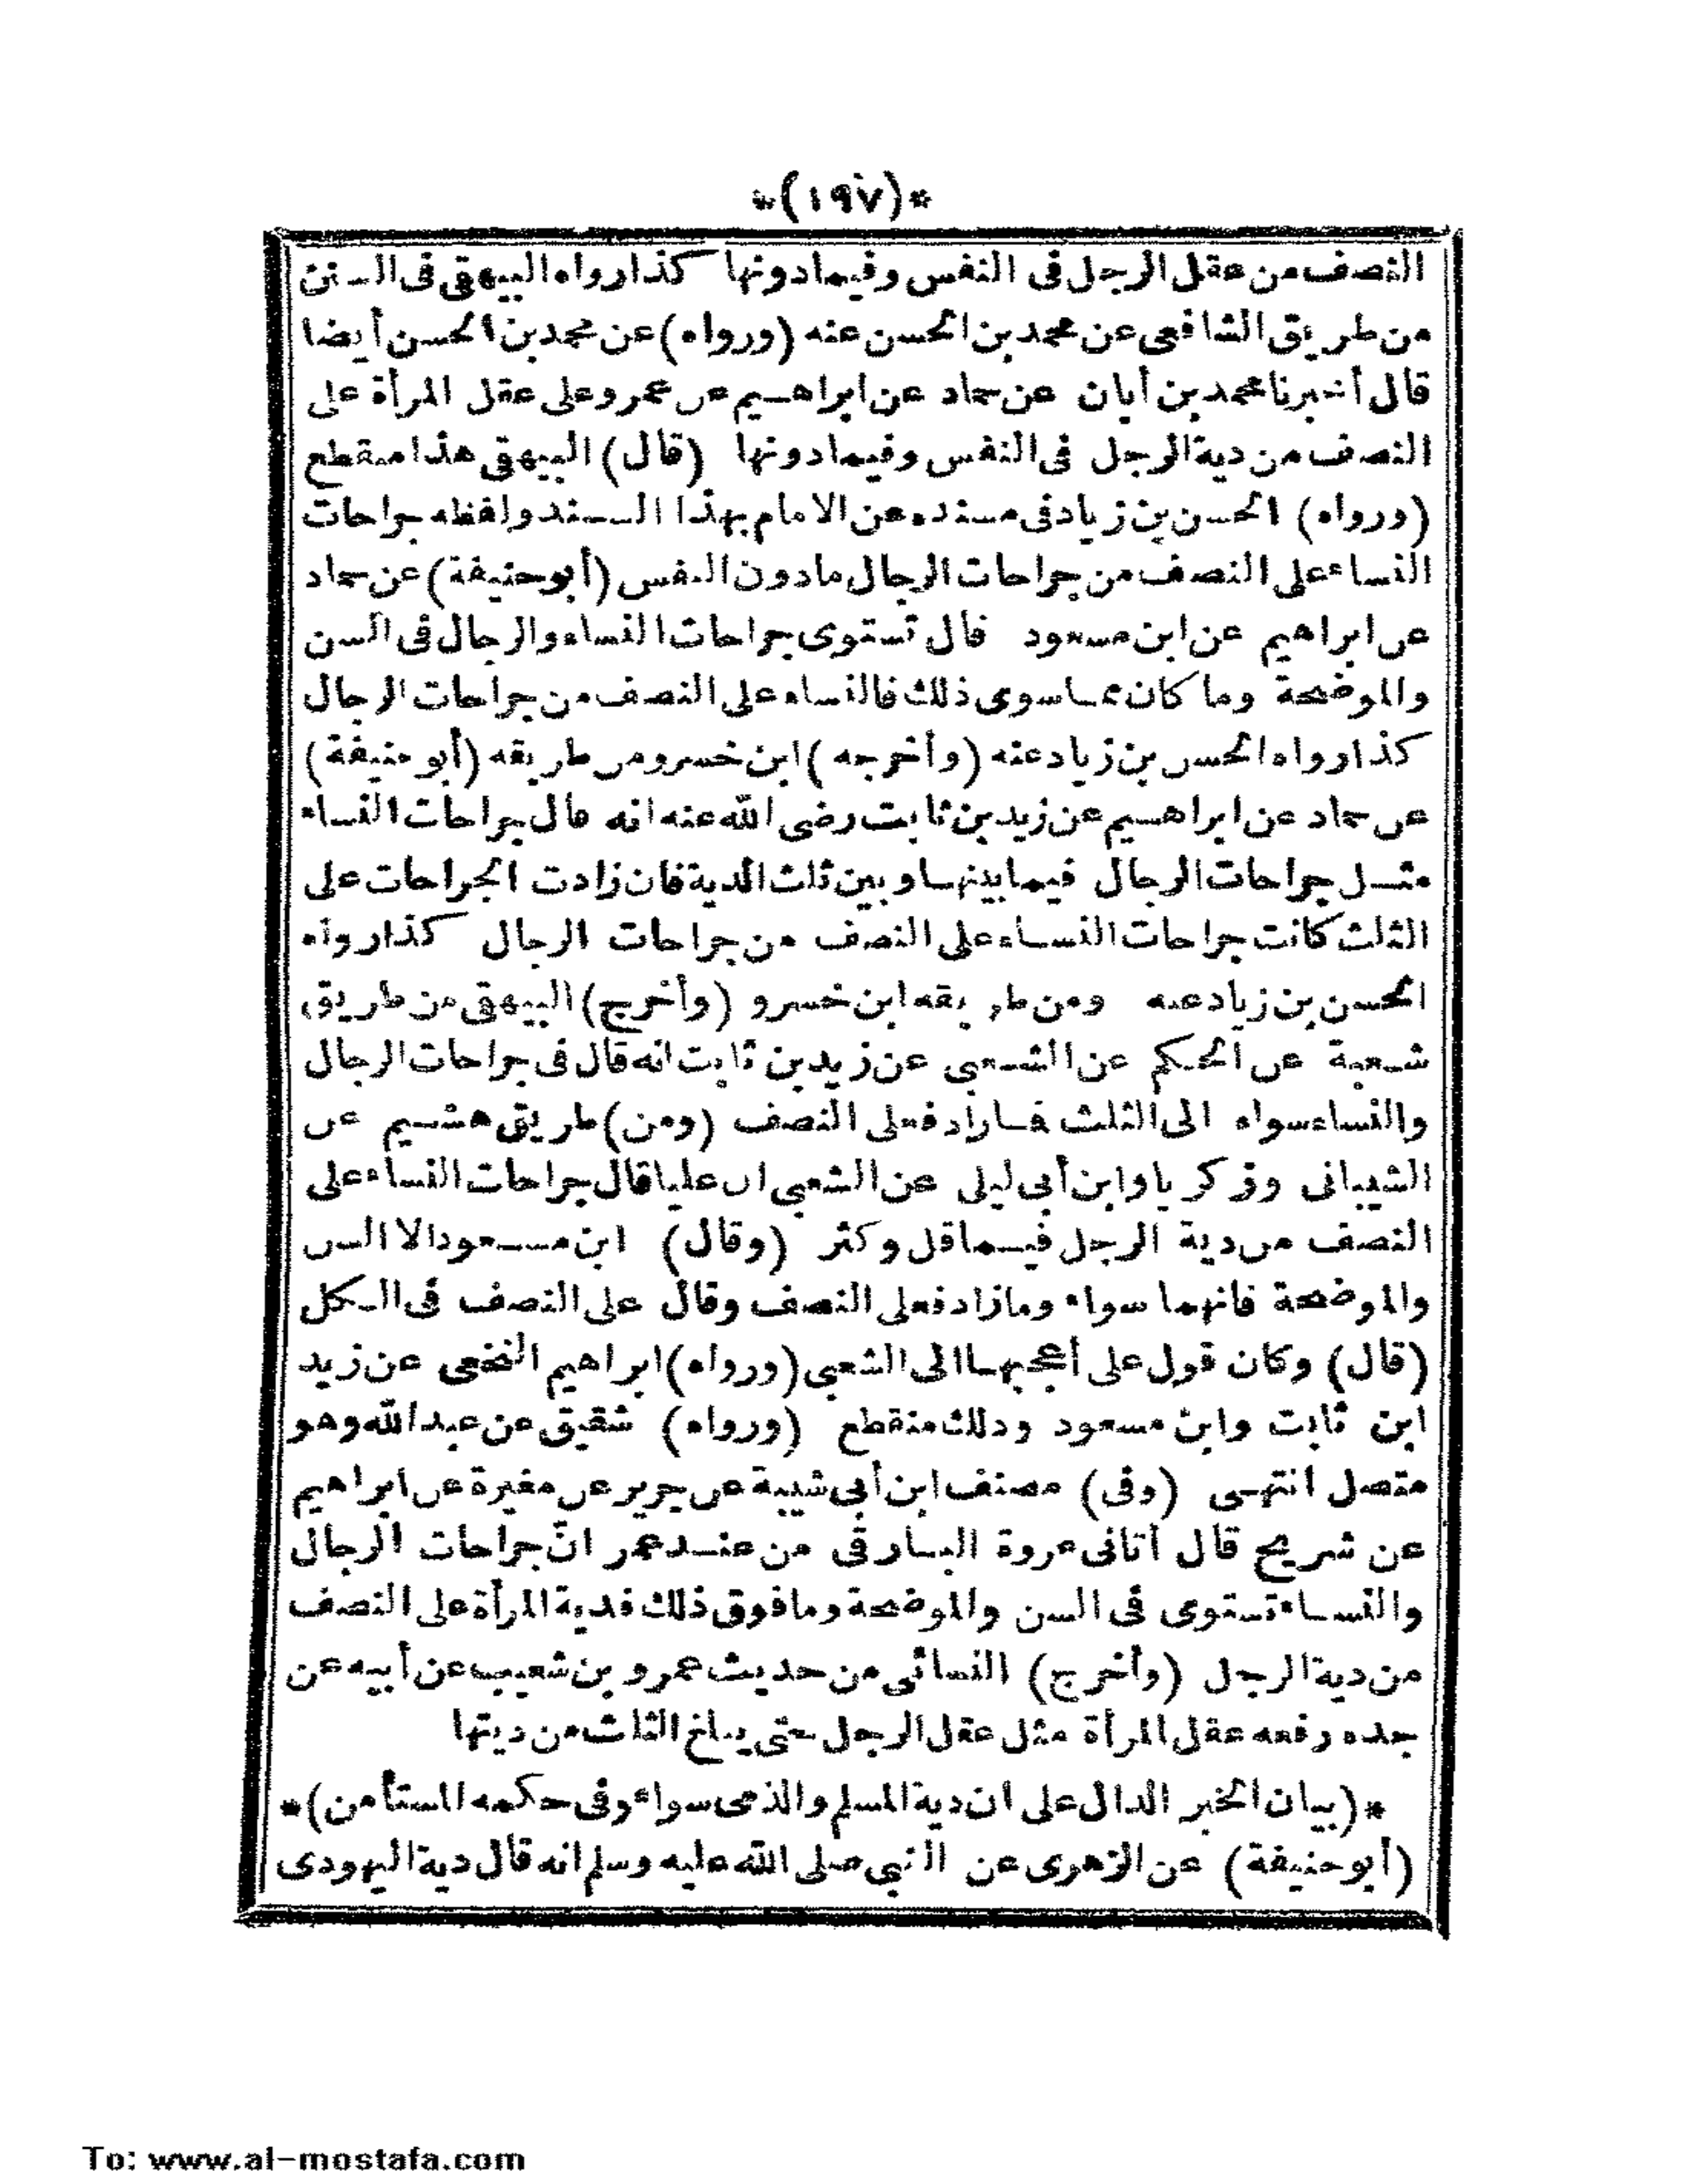 *(١٩٧)*
النصف من عقل الرجل فى النفس وفيما دونها كذا رواه البيهقى فى السنن
من طريق الشافعى عن محمد بن الحسن عنه (ورواه) عن محمد بن الحسن أيضا
قال أخبرنا محمد بن أبان عن حماد عن ابراهيم عن عمر وعلى عقل المرأة على
النصف من دية الرجل فى النفس وفيما دونها (قال) البيهقى هذا منقطع
(ورواه) الحسن بن زياد فى مسنده عن الامام بهذا السند ولفظه جراحات
النساء على النصف من جراحات الرجال مادون النفس (أبو حنيفة) عن حماد
عن ابراهيم عن ابن مسعود قال تستوى جراحات النساء والرجال فى السن
والموضحة وما كان مما سوى ذلك فالنساء على النصف من جراحات الرجال
كذا رواه الحسن بن زياد عنه (وأخرجه) ابن خسرو من طريقه (أبو حنيفة)
عن حماد عن ابراهيم عن زيد بن ثابت رضى الله عنه انه قال جراحات النساء
مثل جراحات الرجال فيما بينها وبين ثلث الدية فان زادت الجراحات على
الثلث كانت جراحات النساء على النصف من جراحات الرجال كذا رواه
الحسن بن زياد عنه ومن طريقه ابن خسرو (وأخرج) البيهقى من طريق
شعبة عن الحكم عن الشعبى عن زيد بن ثابت انه قال فى جراحات الرجال
والنساء سواء الى الثلث فما زاد فعلى النصف (ومن) طريق هشيم عن
الشيبانى وزكريا وابن أبى ليلى عن الشعبى ان عليا قال جراحات النساء على
النصف من دية الرجل فيما قل وكثر (وقال) ابن مسعود الا السن
والموضحة فانهما سواء وما زاد فعلى النصف وقال على النصف فى الكل
(قال) وكان قول على أعجبها الى الشعبى (ورواه) ابراهيم النخعى عن زيد
ابن ثابت وابن مسعود وذلك منقطع (ورواه) شقيق عن عبد الله وهو
متصل انتهى (وفى) مصنف ابن أبى شيبة عن جرير عن مغيرة عن ابراهيم
عن شريح قال أتانى عروة البارقى من عند عمر انّ جراحات الرجال
والنساء تستوى فى السن والموضحة وما فوق ذلك فدية المرأة على النصف
من دية الرجل (وأخرج) النسائى من حديث عمرو بن شعيب عن أبيه عن
جده رفعه عقل المرأة مثل عقل الرجل حتى يبلغ الثلث من ديتها
*(بيان الخبر الدال على ان دية المسلم والذمى سواء وفى حكمه المستأمن)*
(أبو حنيفة) عن الزهرى عن النبى صلى الله عليه وسلم انه قال دية اليهودى
To: www.al-mostafa.com